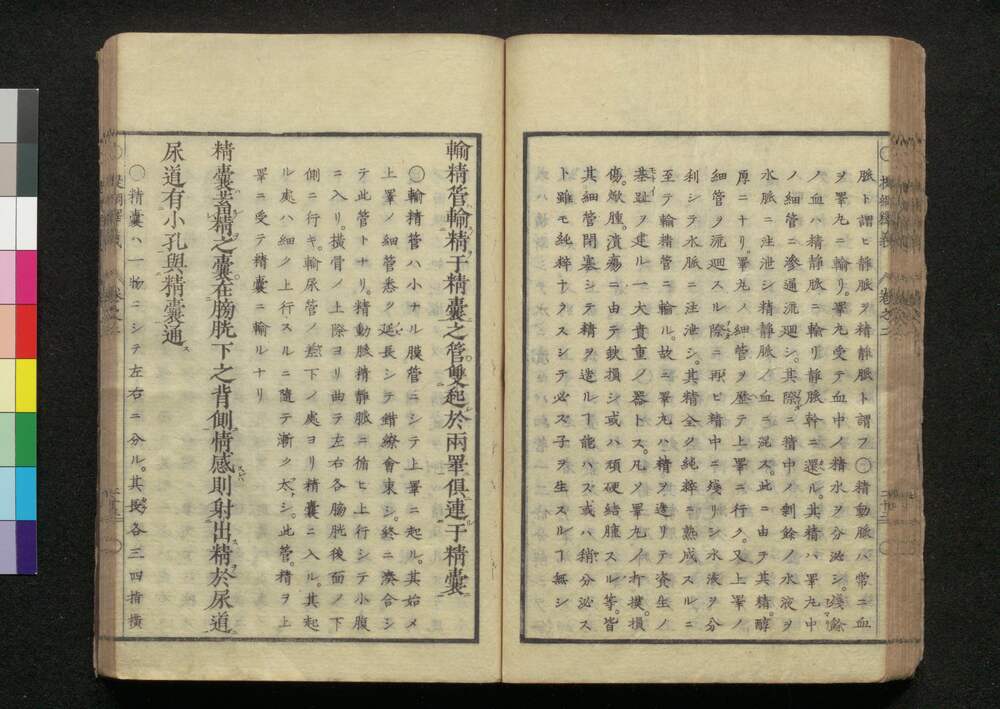 脈ト謂ヒ静脈ヲ精静脈ト謂フ〇精動脈ハ常ニ血
ヲ睪丸ニ輸リ。睪丸受テ血中ノ精水ヲ分泌シ。殘餘
ノ血ハ精静脈ニ輸リ静脈幹ニ還ル。其精ハ睪丸中
ノ細管ニ滲通流廻シ。其際ニ精中ノ剰餘ノ水液ヲ
水脈ニ注泄シ精静脈ノ血ニ混ス。此ニ由テ其精。醇
厚ニナリ。睪丸ノ細管ヲ歴テ上睪ニ行ク。又上睪ノ
細管ヲ流廻スル際ニ再ヒ精中ニ殘リシ水液ヲ分
利シテ水脈ニ注泄シ。其精全ク純粹ニ熟成スルニ
至テ輸精管ニ輸ル。故ニ睪丸ハ精ヲ造リテ資生ノ
基趾ヲ建ル一大貴重ノ器トス。凡ソ睪丸ノ打撲。損
傷。焮腫。潰瘍ニ由テ缺損シ或ハ頑硬結腫スル等。皆
其細管閉塞シテ精ヲ造ルヿ能ハズ或ハ稍分泌ス
ト雖モ純粹ナラズシテ必ス子ヲ生スルヿ無シ
輸精管輸精于精囊之管。雙起於兩睪俱連于精囊
〇輸精管ハ小ナル膜管ニシテ上睪ニ起ル。其始メ
上睪ノ細管悉ク延長シテ錯繚會束シ。終ニ湊合シ
テ此管トナリ。精動脈精静脈ニ循ヒ上行シテ小腹
ニ入リ。横骨ノ上際ヨリ曲テ左右各膀胱後面ノ下
側ニ行キ。輸尿管ノ下ノ處ヨリ精囊ニ入ル。其起
ル處ハ細ク上行スルニ隨テ漸ク太シ。此管。精ヲ上
睪ニ受テ精囊ニ輸ルナリ
精囊蓄精之囊。在膀胱下之背側情感則射出精於尿道
尿道有小孔與精囊通
〇精囊ハ一物ニシテ左右ニ分ル。其長各三四指横